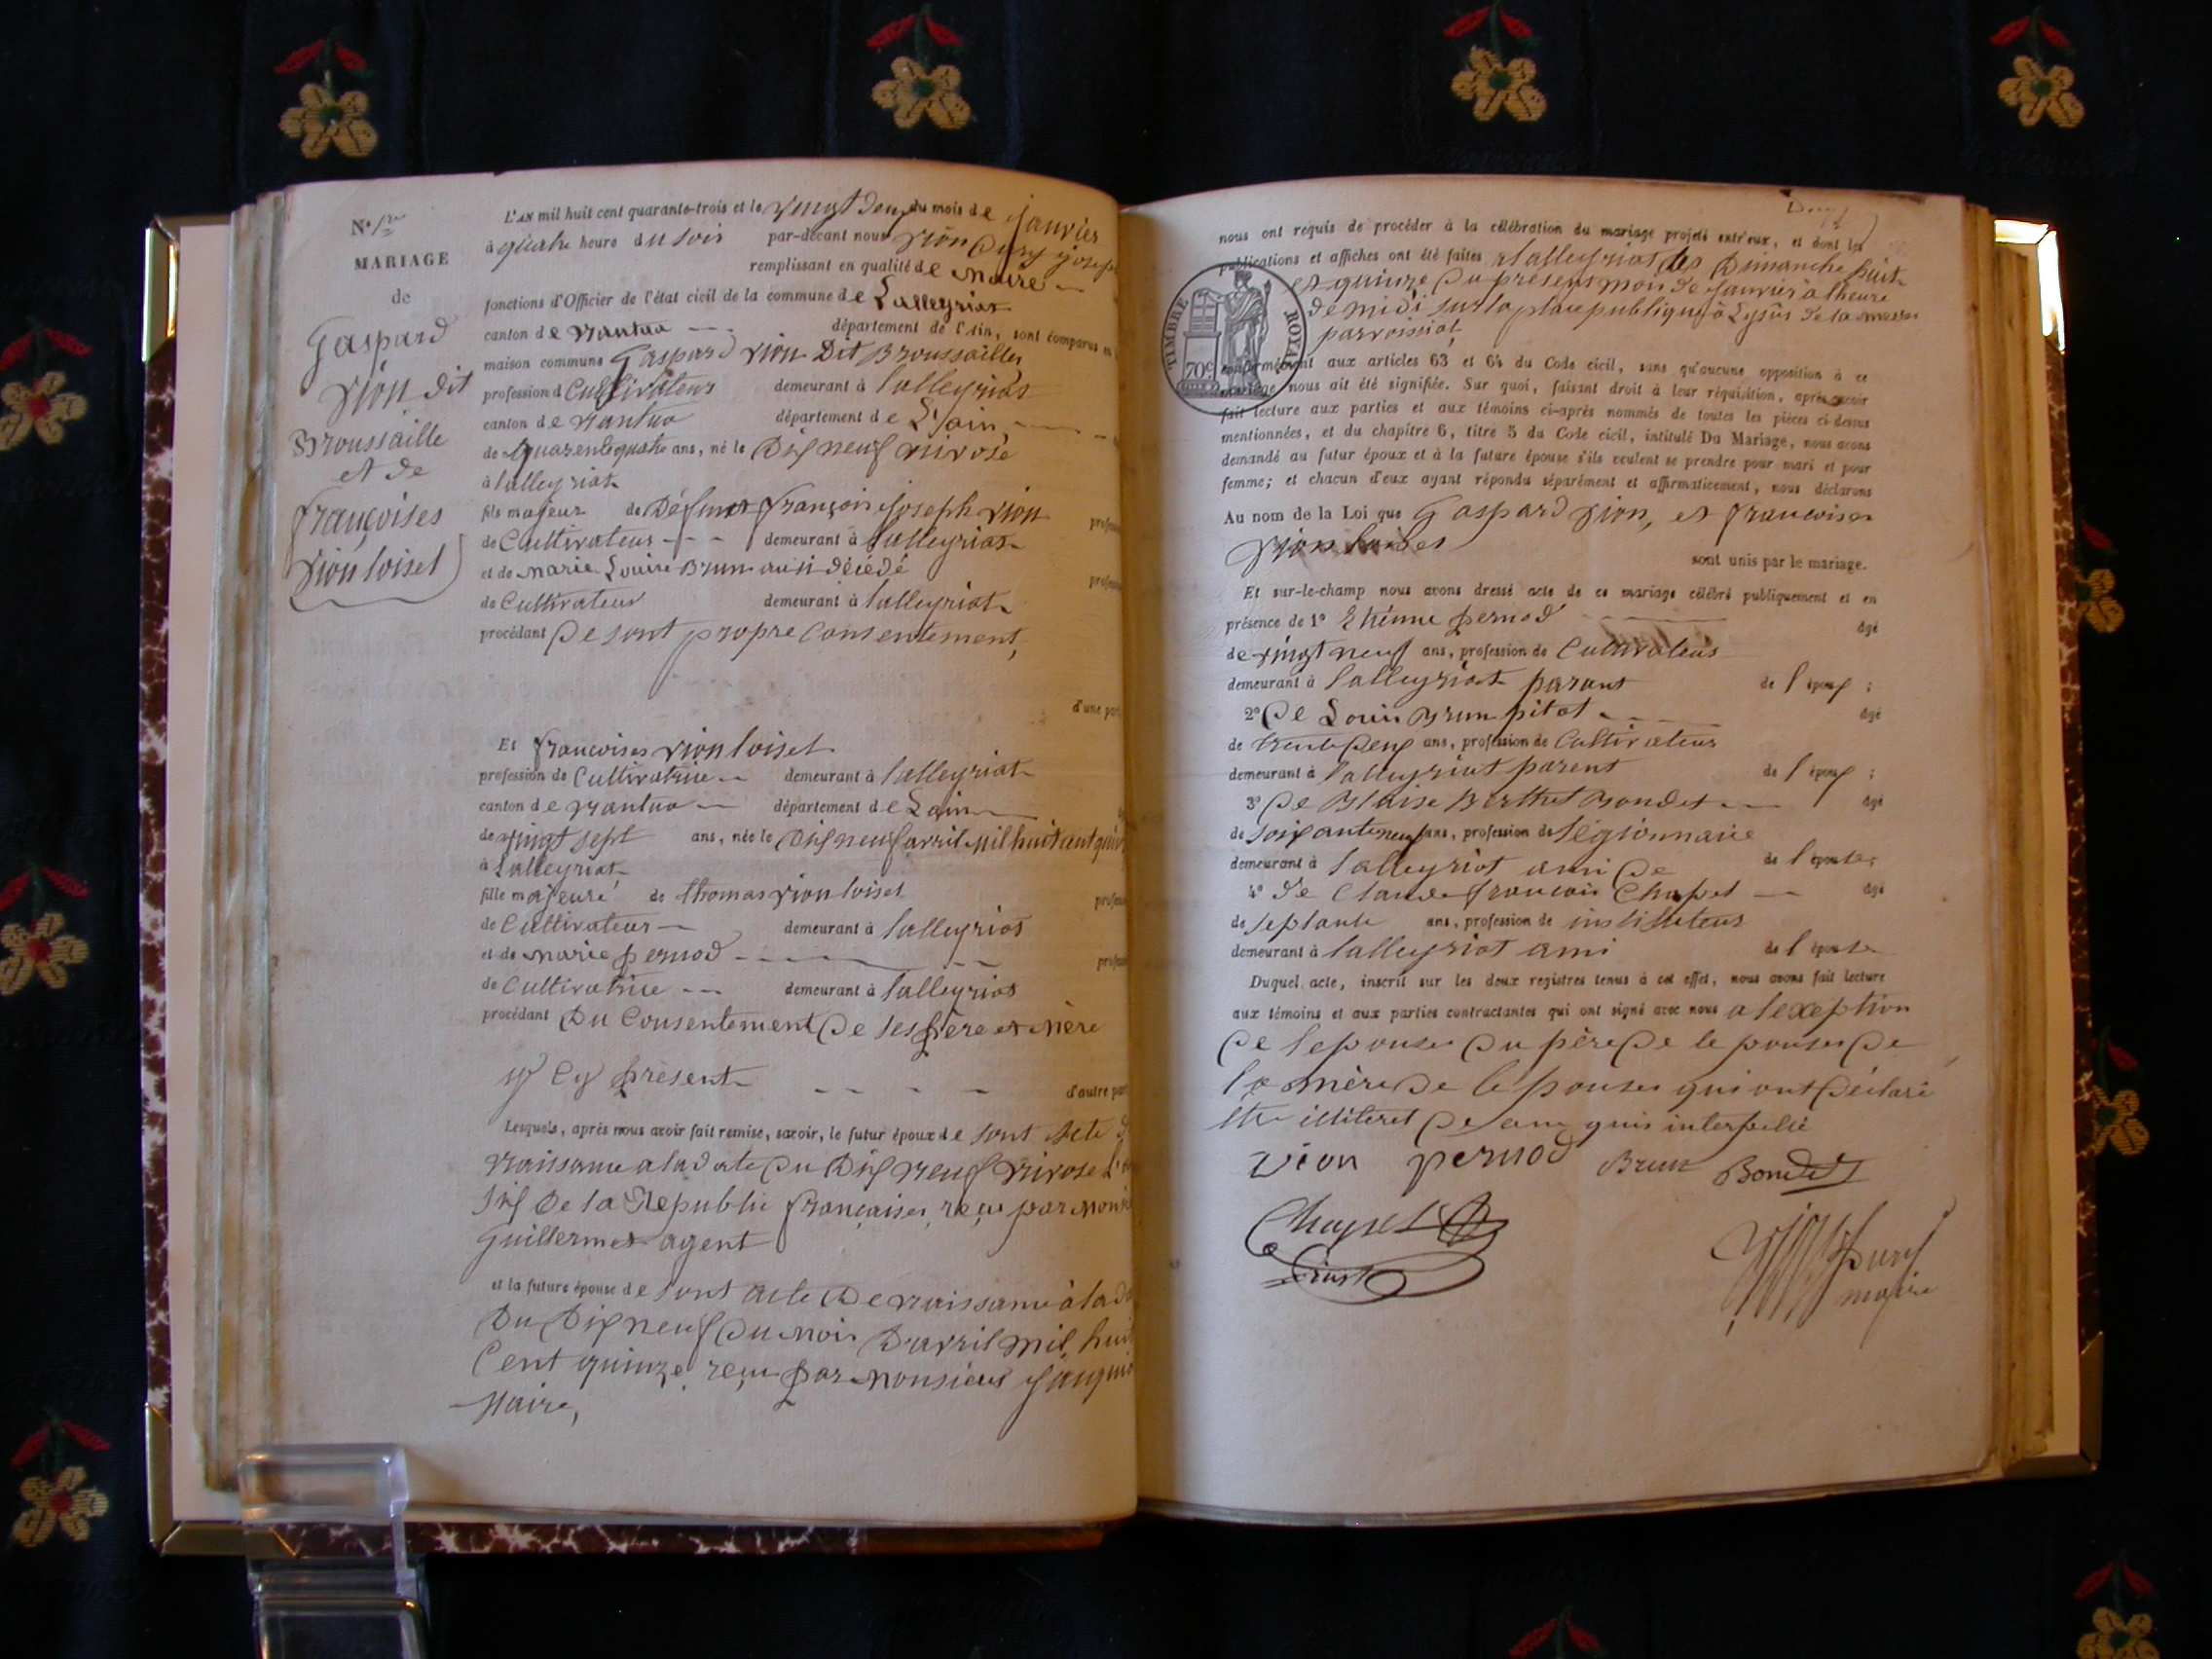 N° 1er
MARIAGE
de
Gaspard
Vion dit
Broussaille
et de
françoises
Vion loiset
L'AN mil huit cent quarante-trois et le vingt deux du mois de janvier
à quatre heure du soir par-devant nous Vion joseph
remplissant en qualité de Maire
fonctions d'Officier de l'état civil de la commune de Lalleyriat
canton de Nantua département de l'Ain, sont comparus en
maison commune Gaspard Vion Dit Broussailles
profession d Cultivateur demeurant à lalleyriat
canton de Nantua département de L'ain
de quarente quatre ans, né le Dix neuf nivose
à lalleyriat
fils majeur de Défunt françois joseph Vion profess
de Cultivateur demeurant à lalleyriat
et de Marie Louise Brun aussi décédé profess
de Cultivateur demeurant à lalleyriat
procédant De sont propre Consentement,
d'une part
Et francoises Vion loiset
profession de Cultivatrice demeurant à lalleyriat
canton de Nantua département de Lain
de vingt sept ans, née le Dix neuf avril Mil huit cent quin
à Lalleyriat
fille majeure de thomas Vion loiset profess
de Cultivateur demeurant à lalleyriat
et de Marie pernod profess
de Cultivatrice demeurant à lalleyriat
procédant Du Consentement De ses père et Mère
Cy présent d'autre part
Lesquels, après nous avoir fait remise, savoir, le futur époux de sont acte d
Naissance a la date Du Dix neuf Nivose L'
Six De la Republic françaises, reçu par
Guillermet agent
et la future épouse de sont acte De naissance à la
Du Dix neuf Du mois D'avril mil huit
Cent quinze reçu par Monsieur
Maire,
nous ont requis de procéder à la célébration du mariage projeté entr'eux, et dont les
publications et affiches ont été faites a lalleyriat les Dimanche huit
et quinze Du présent mois de janvier a lheure
de midi sur la place publique à Lyssus de la messe
parroissial
TIMBRE ROYAL
70c
conformément aux articles 63 et 64 du Code civil, sans qu'aucune opposition à ce
mariage nous ait été signifiée. Sur quoi, faisant droit à leur réquisition, après avoir
fait lecture aux parties et aux témoins ci-après nommés de toutes les pièces ci-dessus
mentionnées, et du chapitre 6, titre 5 du Code civil, intitulé Du Mariage, nous avons
demandé au futur époux et à la future épouse s'ils veulent se prendre pour mari et pour
femme; et chacun d'eux ayant répondu séparément et affirmativement, nous déclarons
Au nom de la Loi que Gaspard Vion, et francoises
Vion loiset sont unis par le mariage.
Et sur-le-champ nous avons dressé acte de ce mariage célébré publiquement et en
présence de 1° Etienne pernod âgé
de vingt neuf ans, profession de Cultivateur
demeurant à lalleyriat parant de l'époux ;
2° De Louis Brun pitat âgé
de trente Deux ans, profession de Cultivateur
demeurant à lalleyriat parent de l'époux ;
3° De Blaise Berthet Bondet âgé
de soixante neuf ans, profession de légionnaire
demeurant à lalleyriat ami De de l'épouse;
4° de Claude francois Chapel âgé
de septante ans, profession de instituteur
demeurant à lalleyriat ami de l'épouse
Duquel acte, inscrit sur les deux registres tenus à cet effet, nous avons fait lecture
aux témoins et aux parties contractantes qui ont signé avec nous a lexeption
De lepouses Du père De le pouses De
la mère De le pouses qui ont Déclaré
illiteret De ce interpellé
Vion pernod Brun Bondet
Chapel
maire